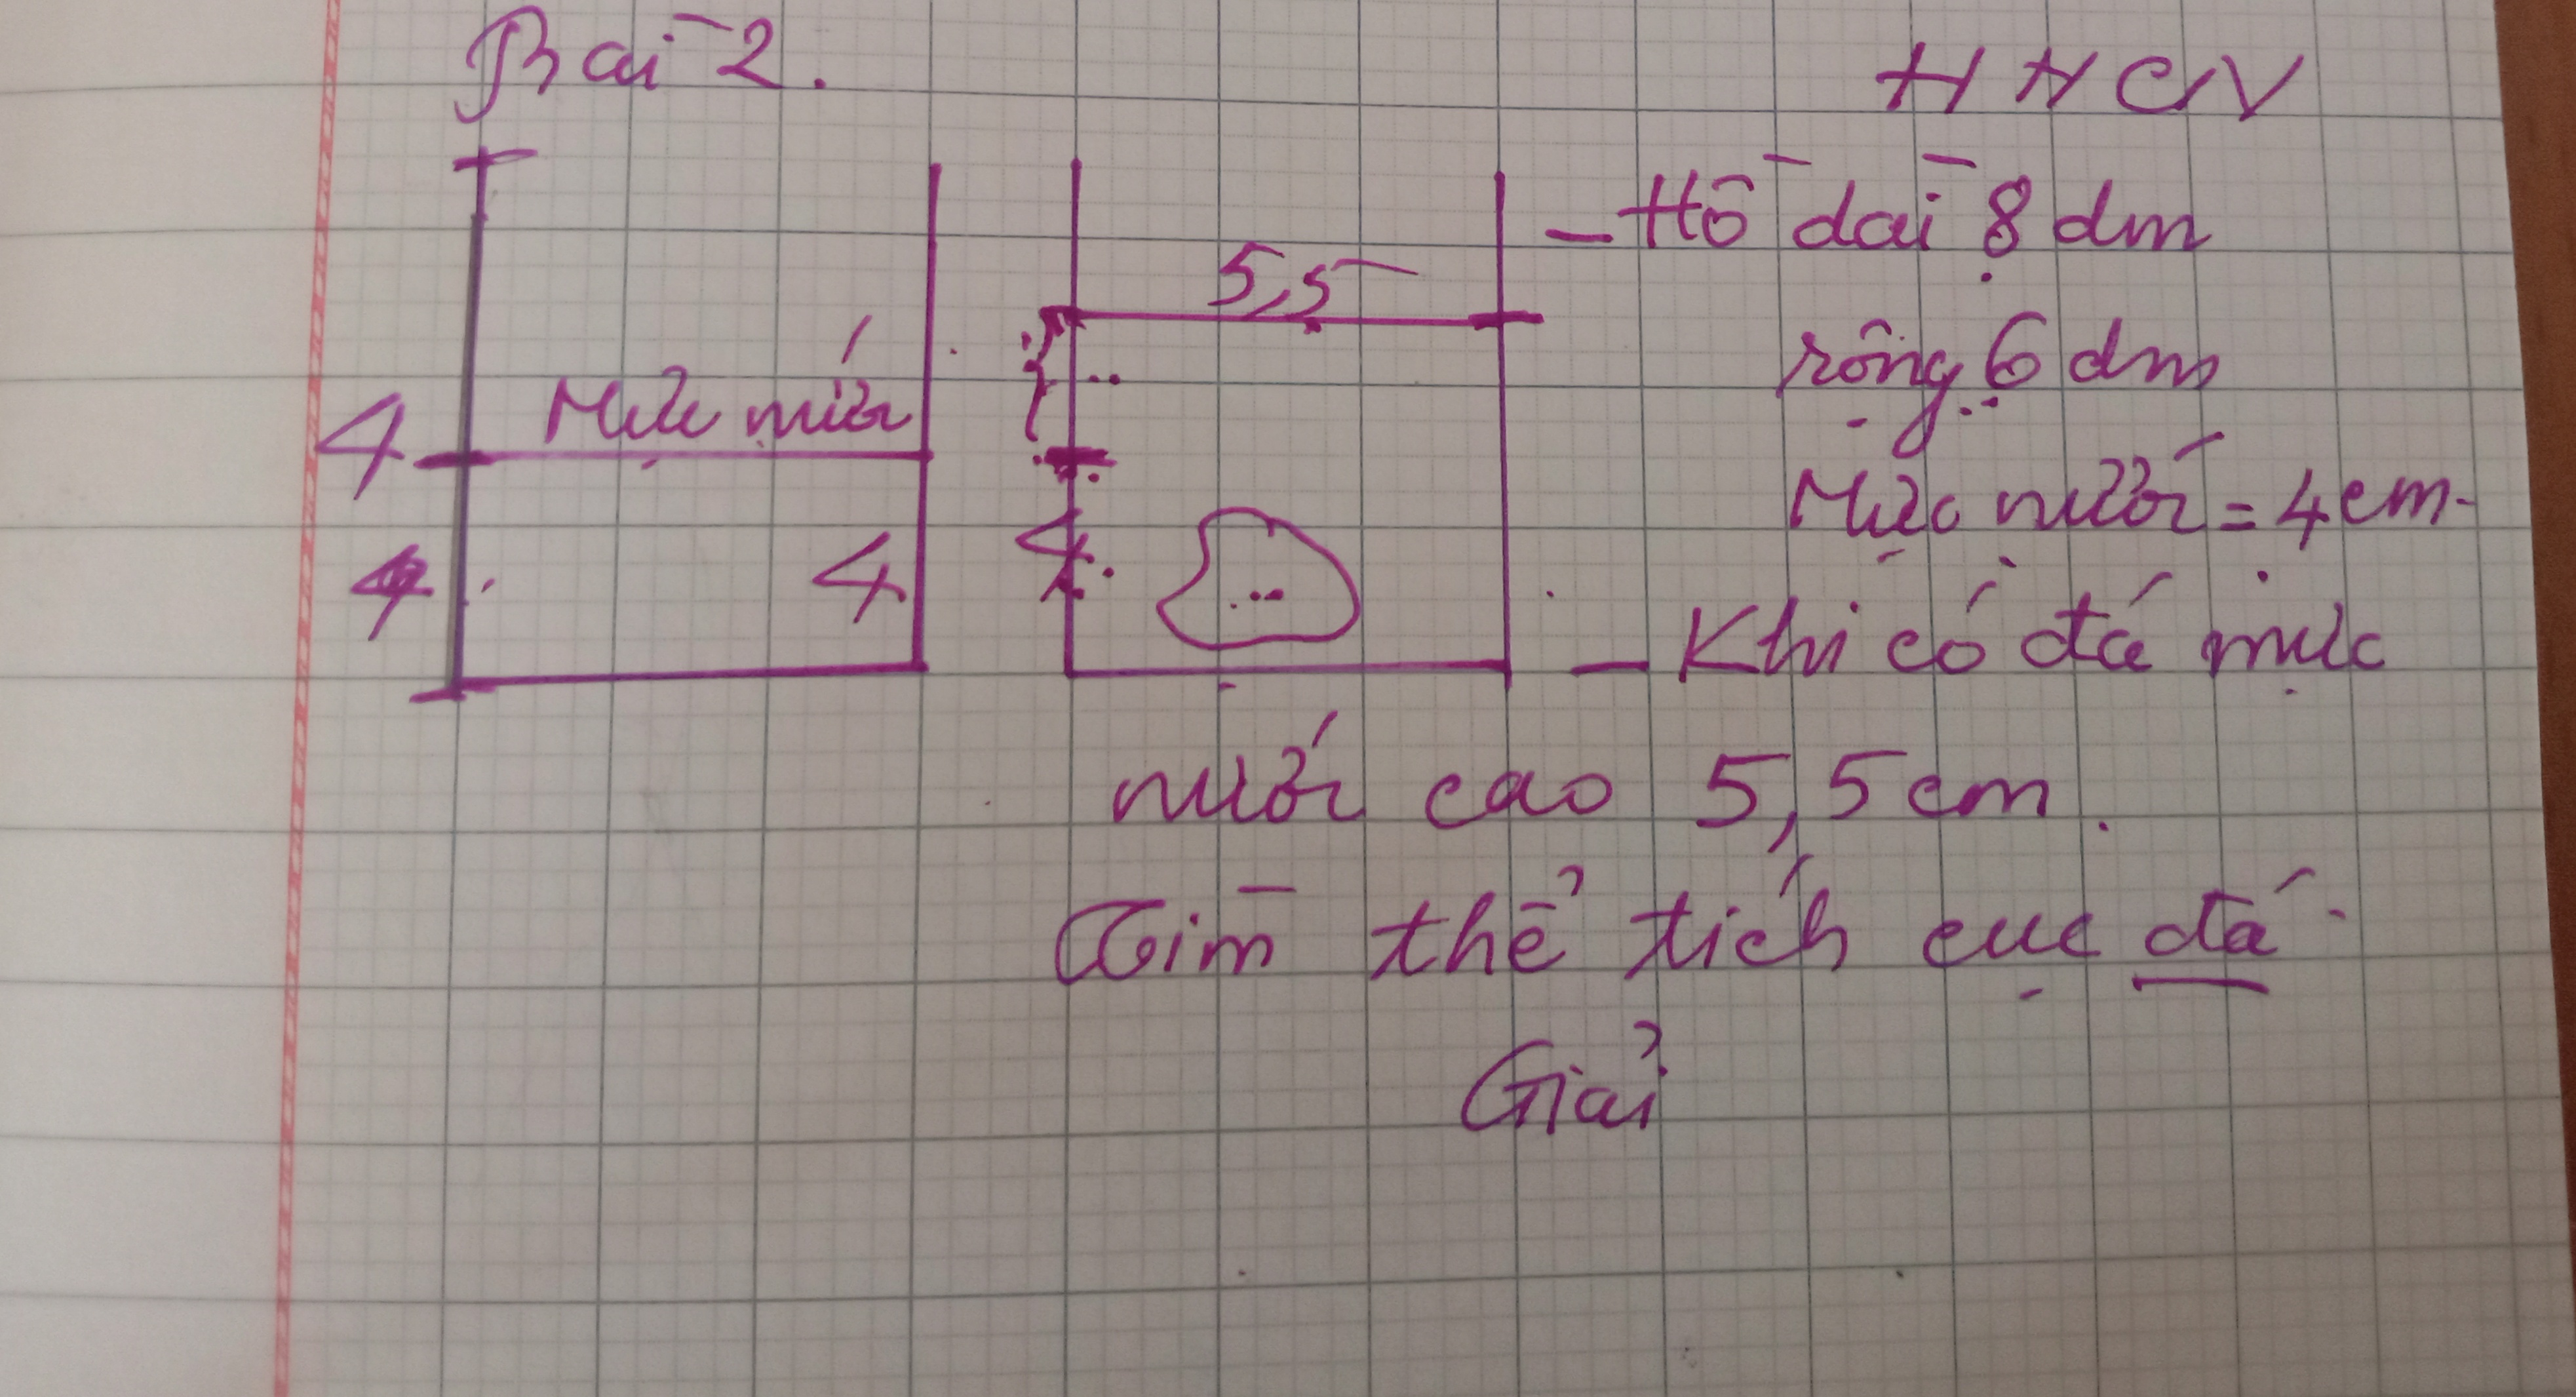 Bài 2.
HHCN
5,5
- Hồ dài 8 dm
rộng 6 dm
4 Mức nước
Mức nước = 4cm.
4 4 4
- Khi có đá mực
nước cao 5,5cm.
Tìm thể tích cục đá
Giải